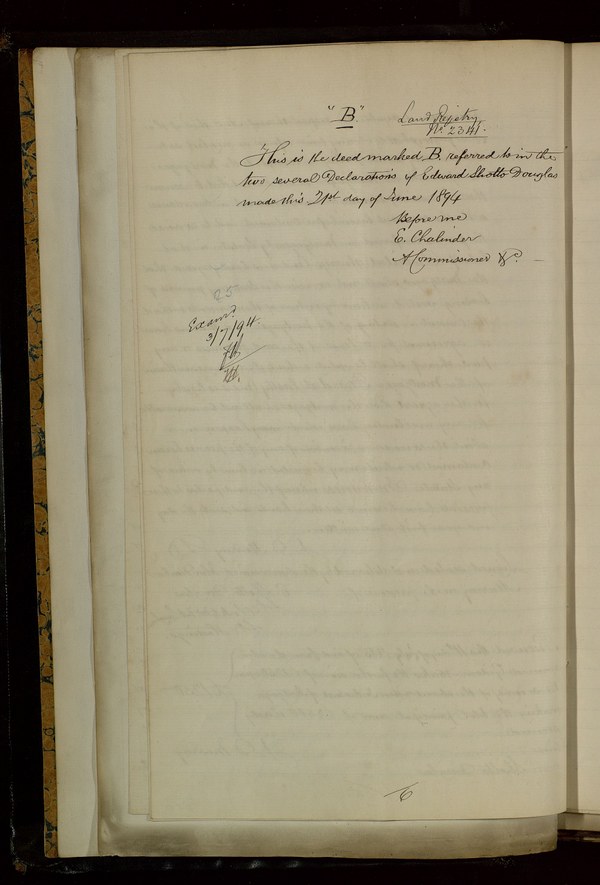 "B"
Land Registry
No. 2341.
This is the deed marked B. referred to in the
two several Declarations of Edward Sholto Douglas
made this 21st day of June 1894
Before me
E. Chalinder
A Commissioner &c.
C5
Examd.
3/7/94.
6